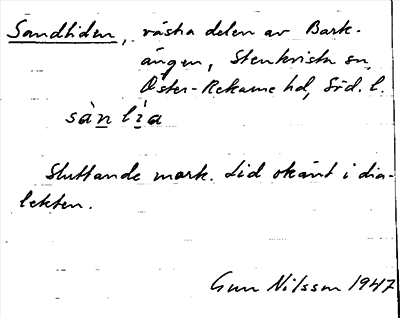 Sandliden, västra delen av Bark-
ängen, Stenkvista sn,
Öster-Rekarne hd, Söd. l.
sànlìa
Sluttande mark. Lid okänt i dia-
lekten.
Gun Nilsson 1947